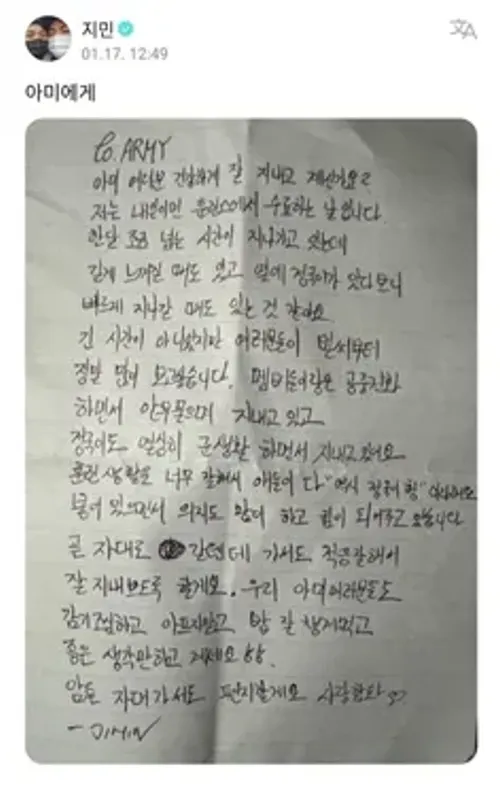 지민
01.17. 12:49
아미에게
to. ARMY
아미 여러분 건강하게 잘 지내고 계신가요?
저는 내일이면 훈련소에서 수료하는 날입니다.
한달 조금 넘는 시간이 지나가고 있는데
길게 느껴질 때도 있고 옆에 정국이가 있다보니
빠르게 지나간 때도 있는 것 같아요
긴 시간이 아니였지만 여러분들이 벌써부터
정말 많이 보고싶습니다. 멤버들이랑은 공중전화
하면서 안부 물으며 지내고 있고
정국이도 열심히 군생활 하면서 지내고 있어요
훈련생활을 너무 잘해서 애들이 다 "역시 정국이 형"
붙어 있으면서 의지도 많이 하고 힘이 되어주고 있습니다
곧 자대로 갈텐데 가서도 적응잘해서
잘 지내보도록 할게요. 우리 아미여러분들도
감기조심하고 아프지말고 밥 잘 챙겨먹고
좋은 생각만하고 계세요
암튼 자대가서도 편지할게요 사랑합니다
- JIMIN